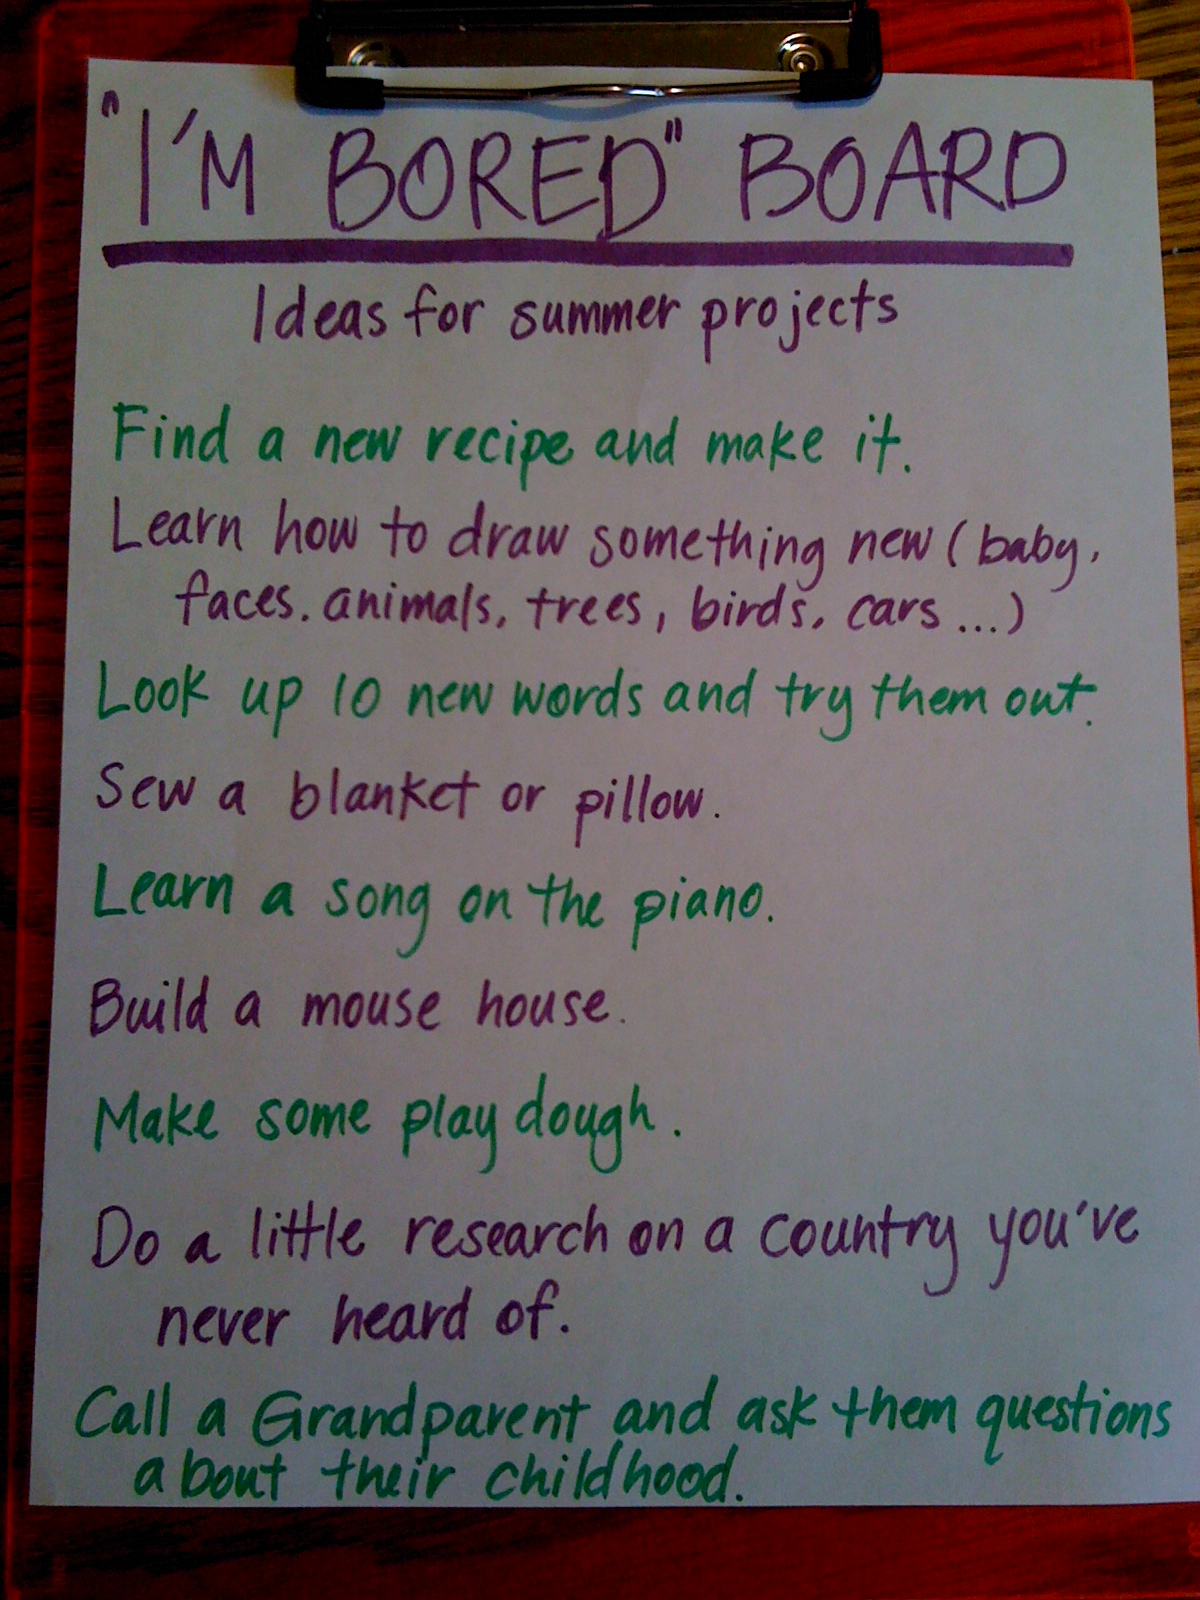 "I'M BORED" BOARD
Ideas for summer projects
Find a new recipe and make it.
Learn how to draw something new (baby,
faces, animals, trees, birds, cars ...)
Look up 10 new words and try them out.
Sew a blanket or pillow.
Learn a song on the piano.
Build a mouse house.
Make some play dough.
Do a little research on a country you've
never heard of.
Call a Grandparent and ask them questions
about their childhood.